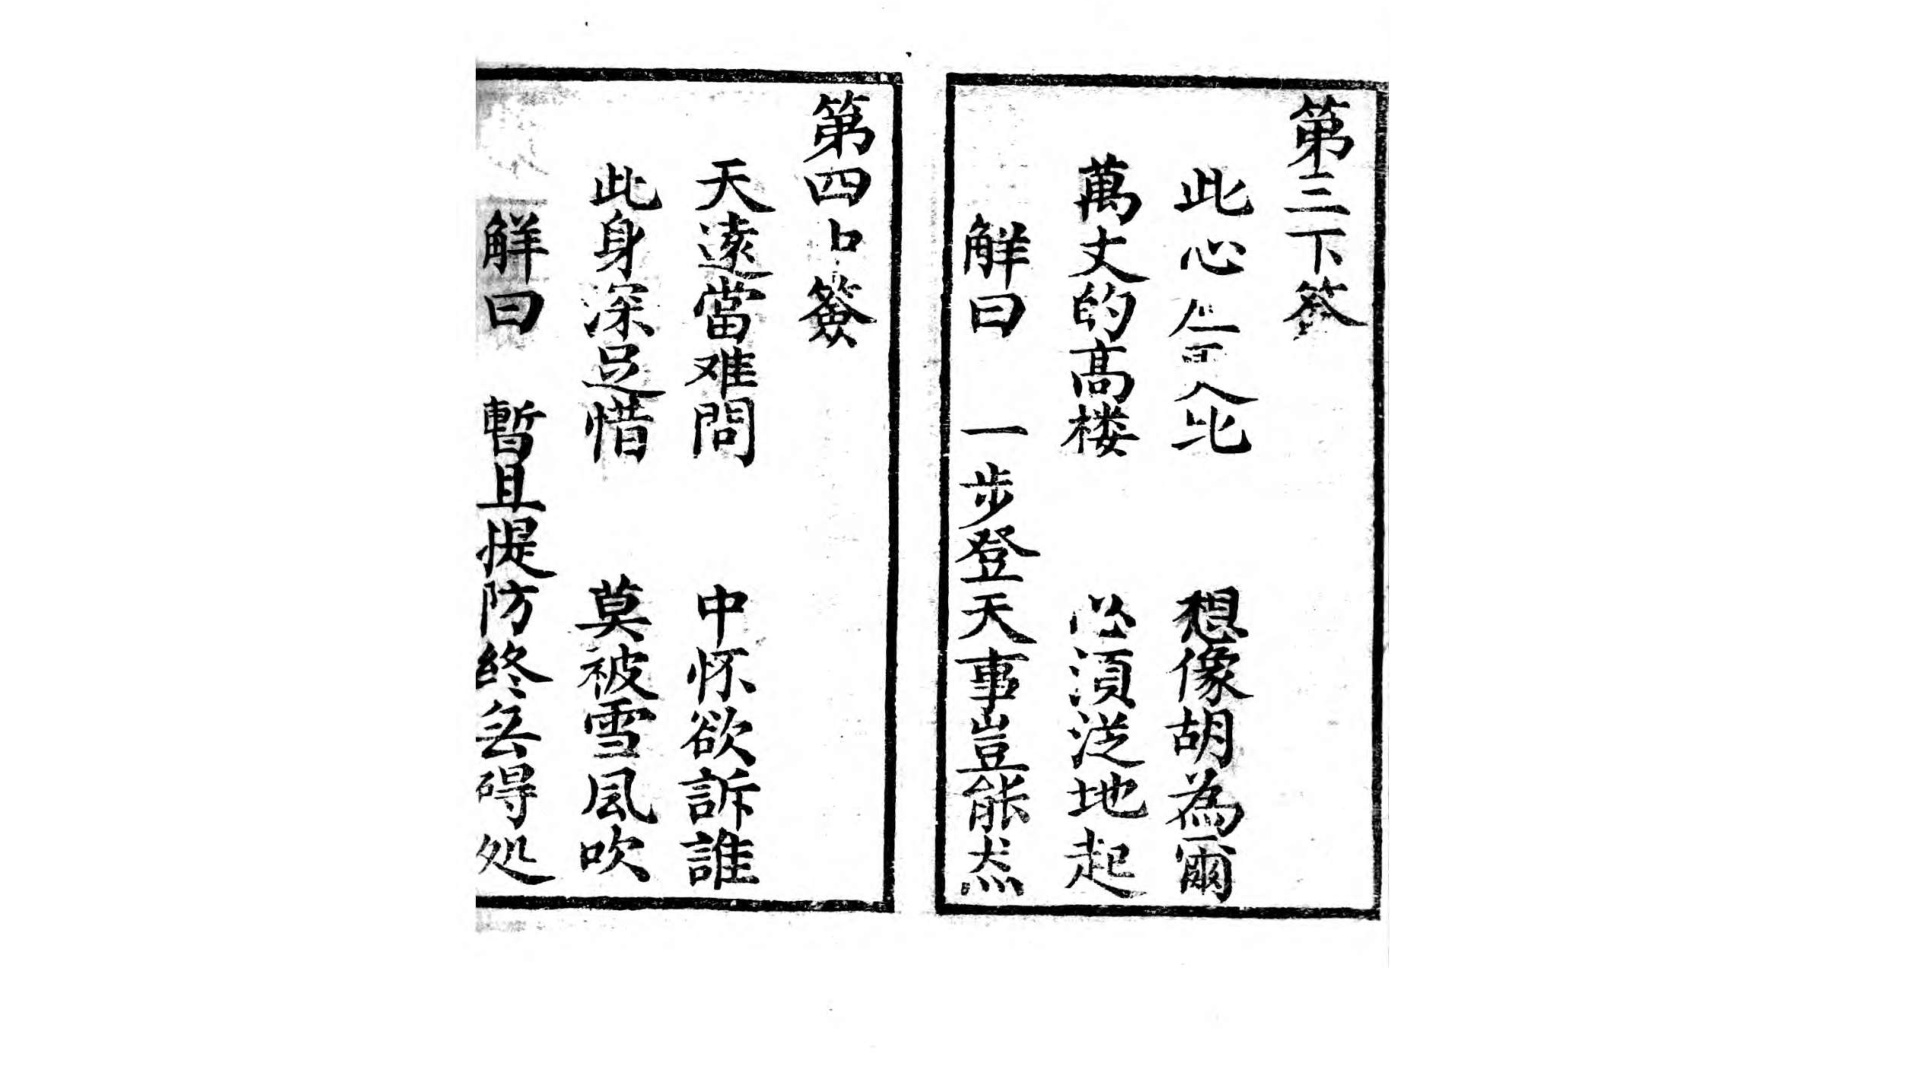 第三下签
此心 想像胡為爾
萬丈的高楼 必須従地起
觧曰 一步登天事豈能
第四中簽
天遠當难問 中怀欲訴誰
此身深足惜 莫被雪風吹
觧曰 暫且提防終無碍処